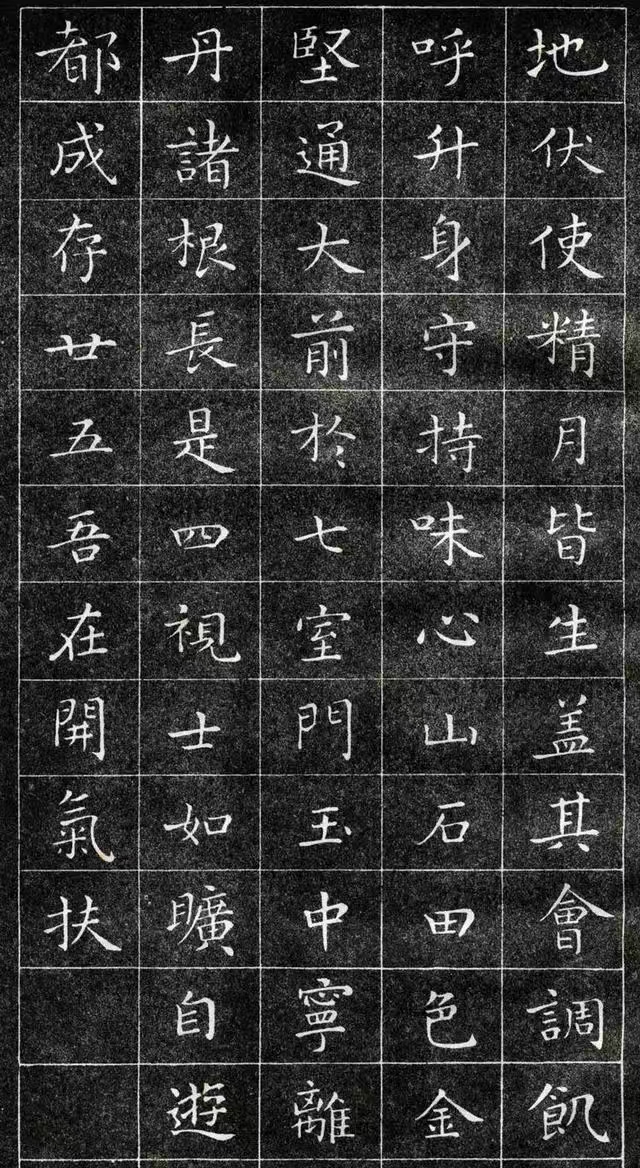 地伏使精月皆生盖其會調飢
呼升身守持味心山石田色金
堅通大前於七室門玉中寧離
丹諸根長是四視士如曠自遊
都成存廿五吾在開氣扶